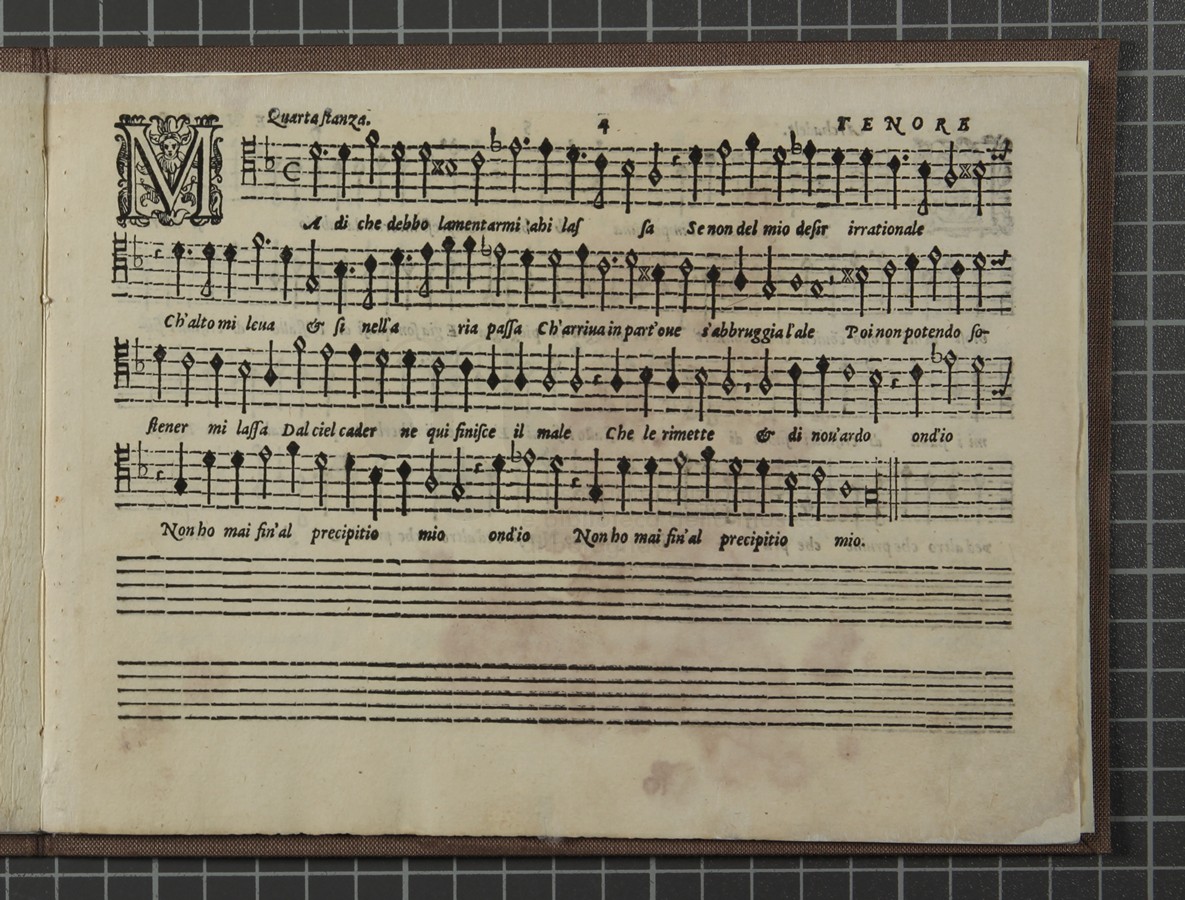 Quarta stanza. 4 TENORE
MA di che debbo lamentarmi ahi las sa Se non del mio desir irrationale
Ch'alto mi leua & si nell'a ria passa Ch'arriua in part'oue s'abbruggia l'ale Poi non potendo so-
stener mi lassa Dal ciel cader ne qui finisce il male Che le rimette & di nou'ardo ond'io
Non ho mai fin'al precipitio mio ond'io Non ho mai fin'al precipitio mio.